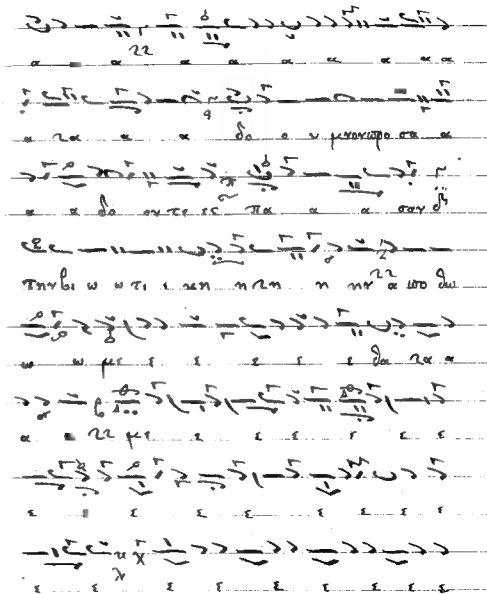 α α α α α α α α α
α γα α α δο ο υ μνονπροσα α
α α δο οντε ες πα α α σαν
την βι ω ω τι ι κη η γη η ην α πο θω
ω ω με ε ε ε ε ε ε θα γα α
α με ε ε ε ε ε ε
ε ε ε ε ε ε ε ε
ε ε ε ε ε ε ε ε ε